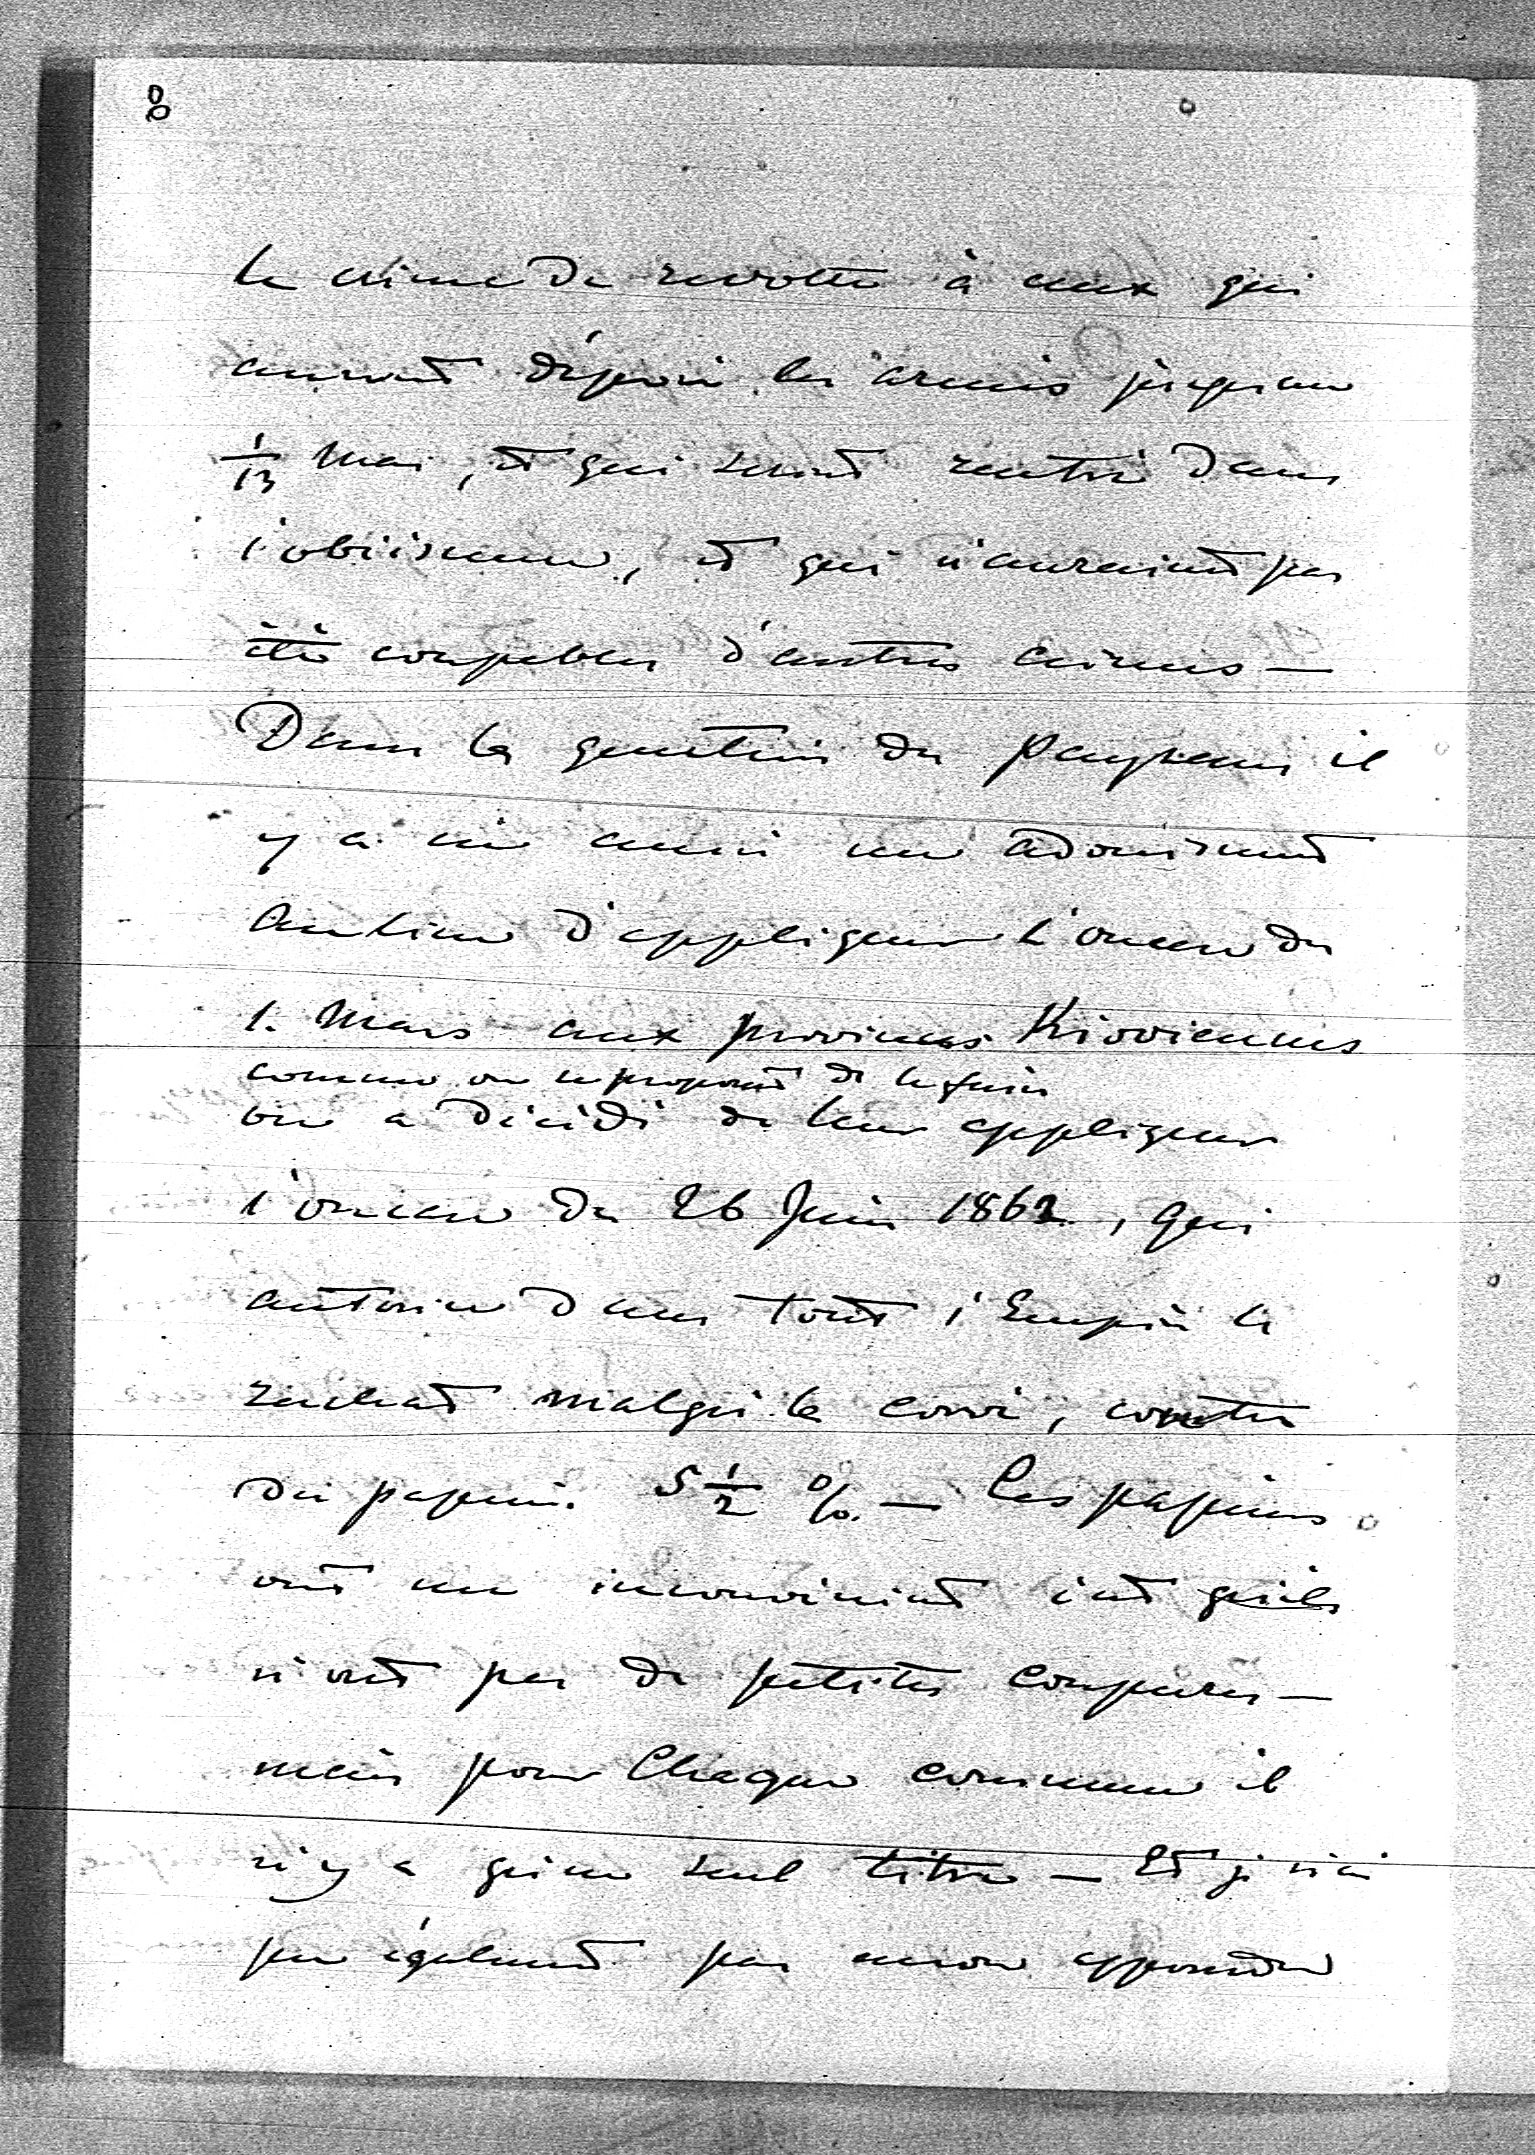 8
le crime de revolte à ceux qui
auront déposé les armes jusqu'au
1/13 Mai, et qui seront rentré dans
l'obéissance, et qui n'auraient pas
été coupables d'autres crimes —
Dans la question des Paysans il
y a eu aussi un adoucissement
Au lieu d'appliquer l'oucase du
1. Mars aux provinces Kioviennes
comme on se proposait de le faire
on a décidé de leur appliquer
l'oucase du 26 Juin 1862, qui
autorise dans tout l'Empire le
rachat malgré la corvé, contre
des papiers. 5 1/2 %. — Ces papiers
ont un inconvenient c'est qu'ils
n'ont pas de petites coupures —
mais pour Chaque commune il
n'y a qu'un seul titre — Et je n'ai
pu également pas encore apprendre